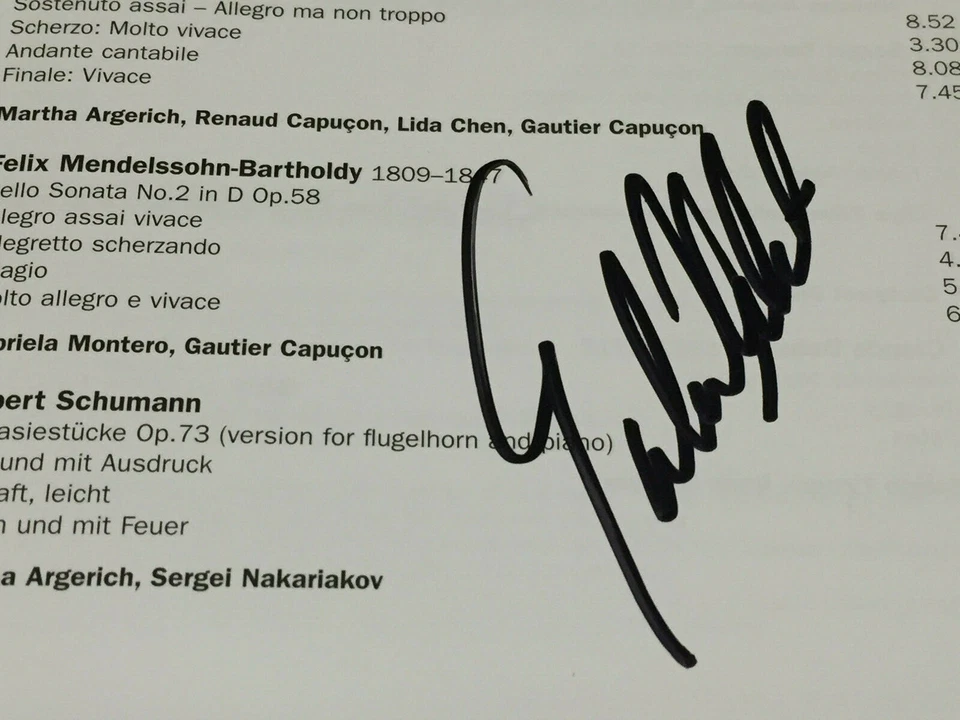 Sostenuto assai – Allegro ma non troppo 8.52
Scherzo: Molto vivace 3.30
Andante cantabile 8.08
Finale: Vivace 7.45
Martha Argerich, Renaud Capuçon, Lida Chen, Gautier Capuçon
Felix Mendelssohn-Bartholdy 1809–1847
ello Sonata No.2 in D Op.58
llegro assai vivace 7.
legretto scherzando 4.
agio 5
olto allegro e vivace 6
briela Montero, Gautier Capuçon
bert Schumann
asiestücke Op.73 (version for flugelhorn and piano)
und mit Ausdruck
aft, leicht
h und mit Feuer
a Argerich, Sergei Nakariakov